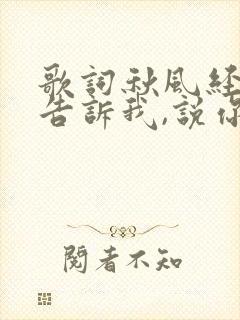 歌詞秋風経
告訴我,說你
閱者不知